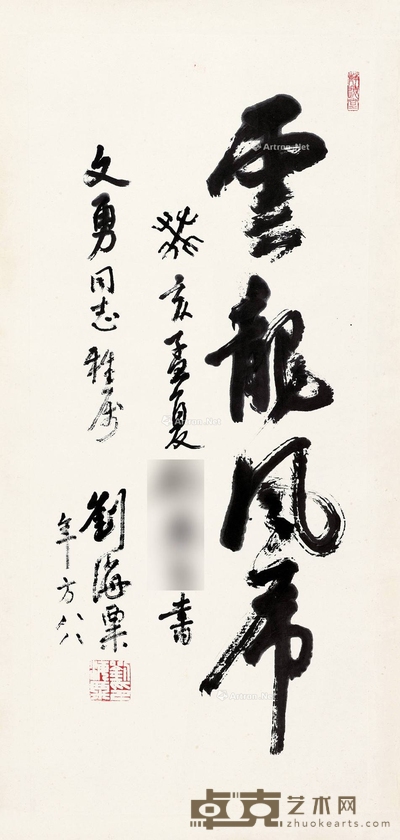 雲龍风虎
癸亥孟夏
書
文勇同志雅属
劉海粟
年方八八
Artron.Net
卓克艺术网
zhuokearts.com